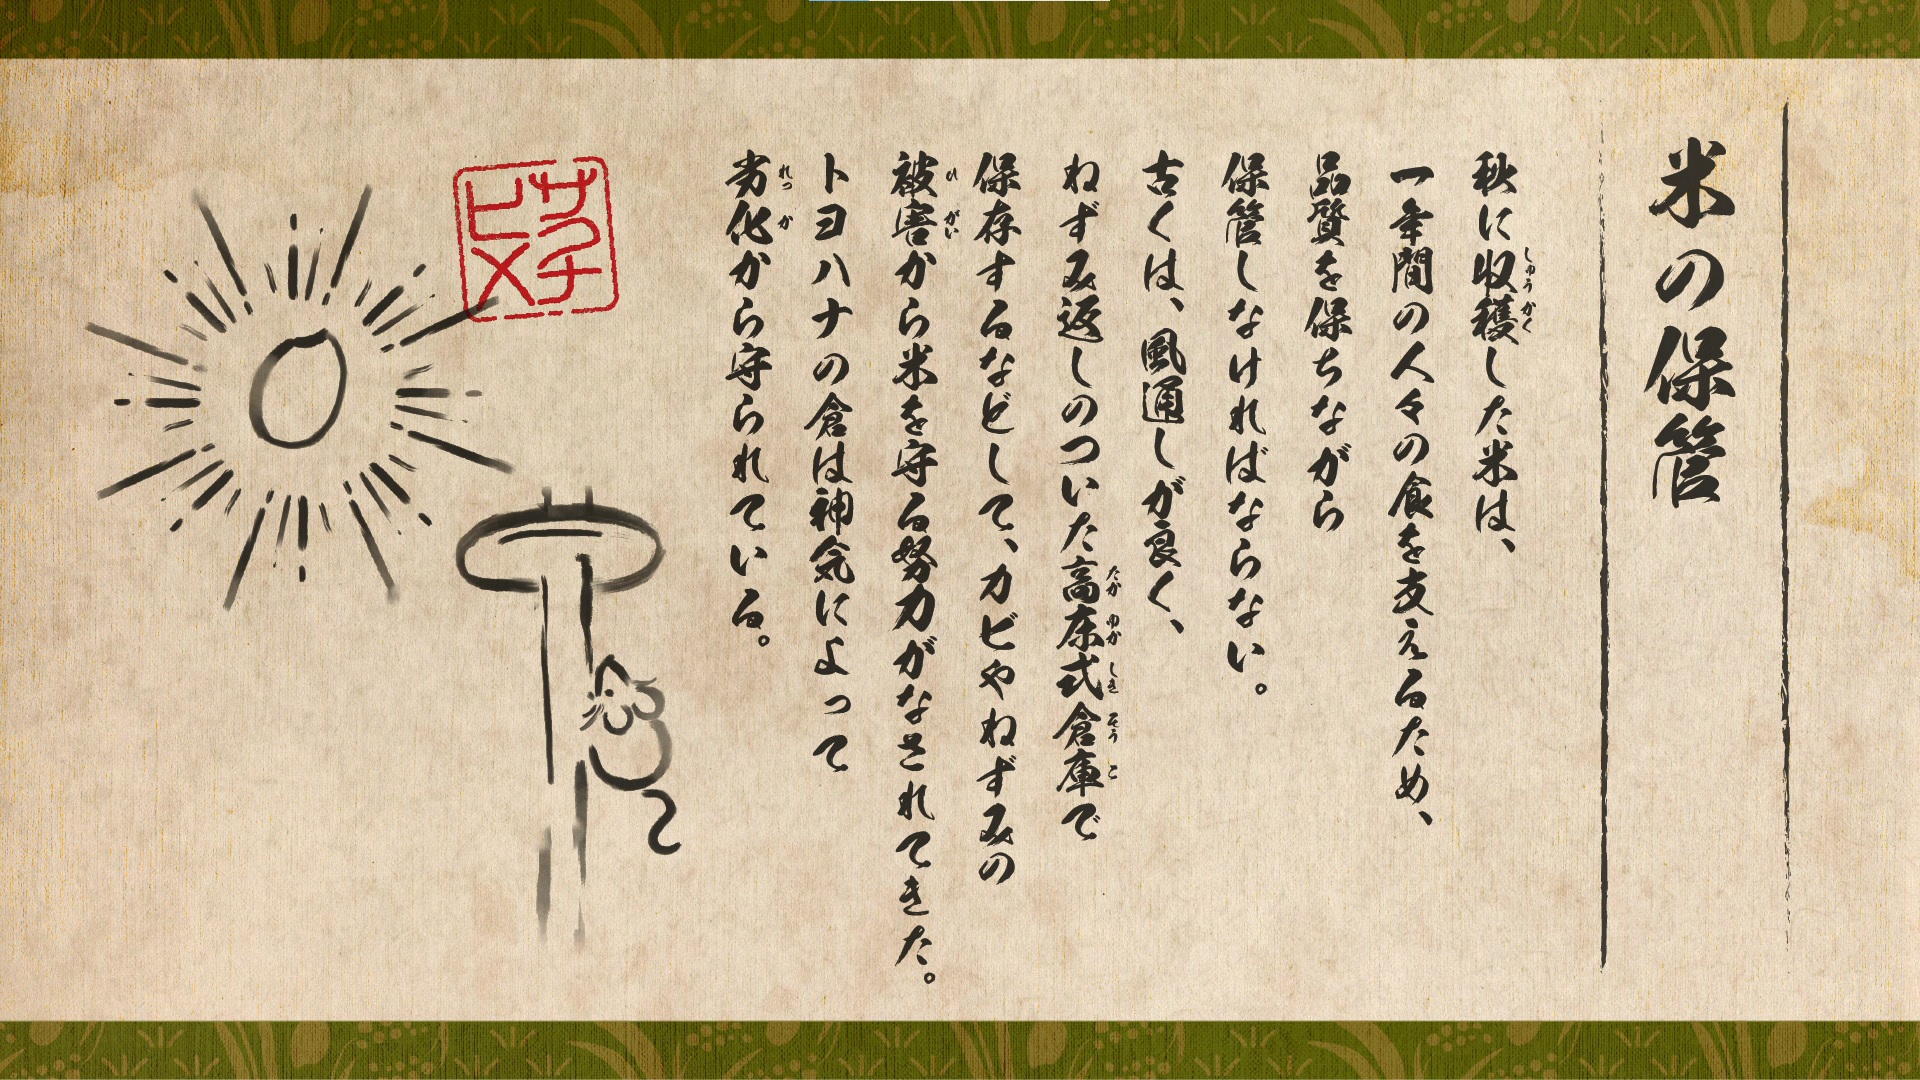 米の保管
秋に収穫した米は、
一年間の人々の食を支えるため、
品質を保ちながら
保管しなければならない。
古くは、風通しが良く、
ねずみ返しのついた高床式倉庫で
保存するなどして、カビやねずみの
被害から米を守る努力がなされてきた。
トヨハナの倉は神気によって
劣化から守られている。
サクチ
ヒメ